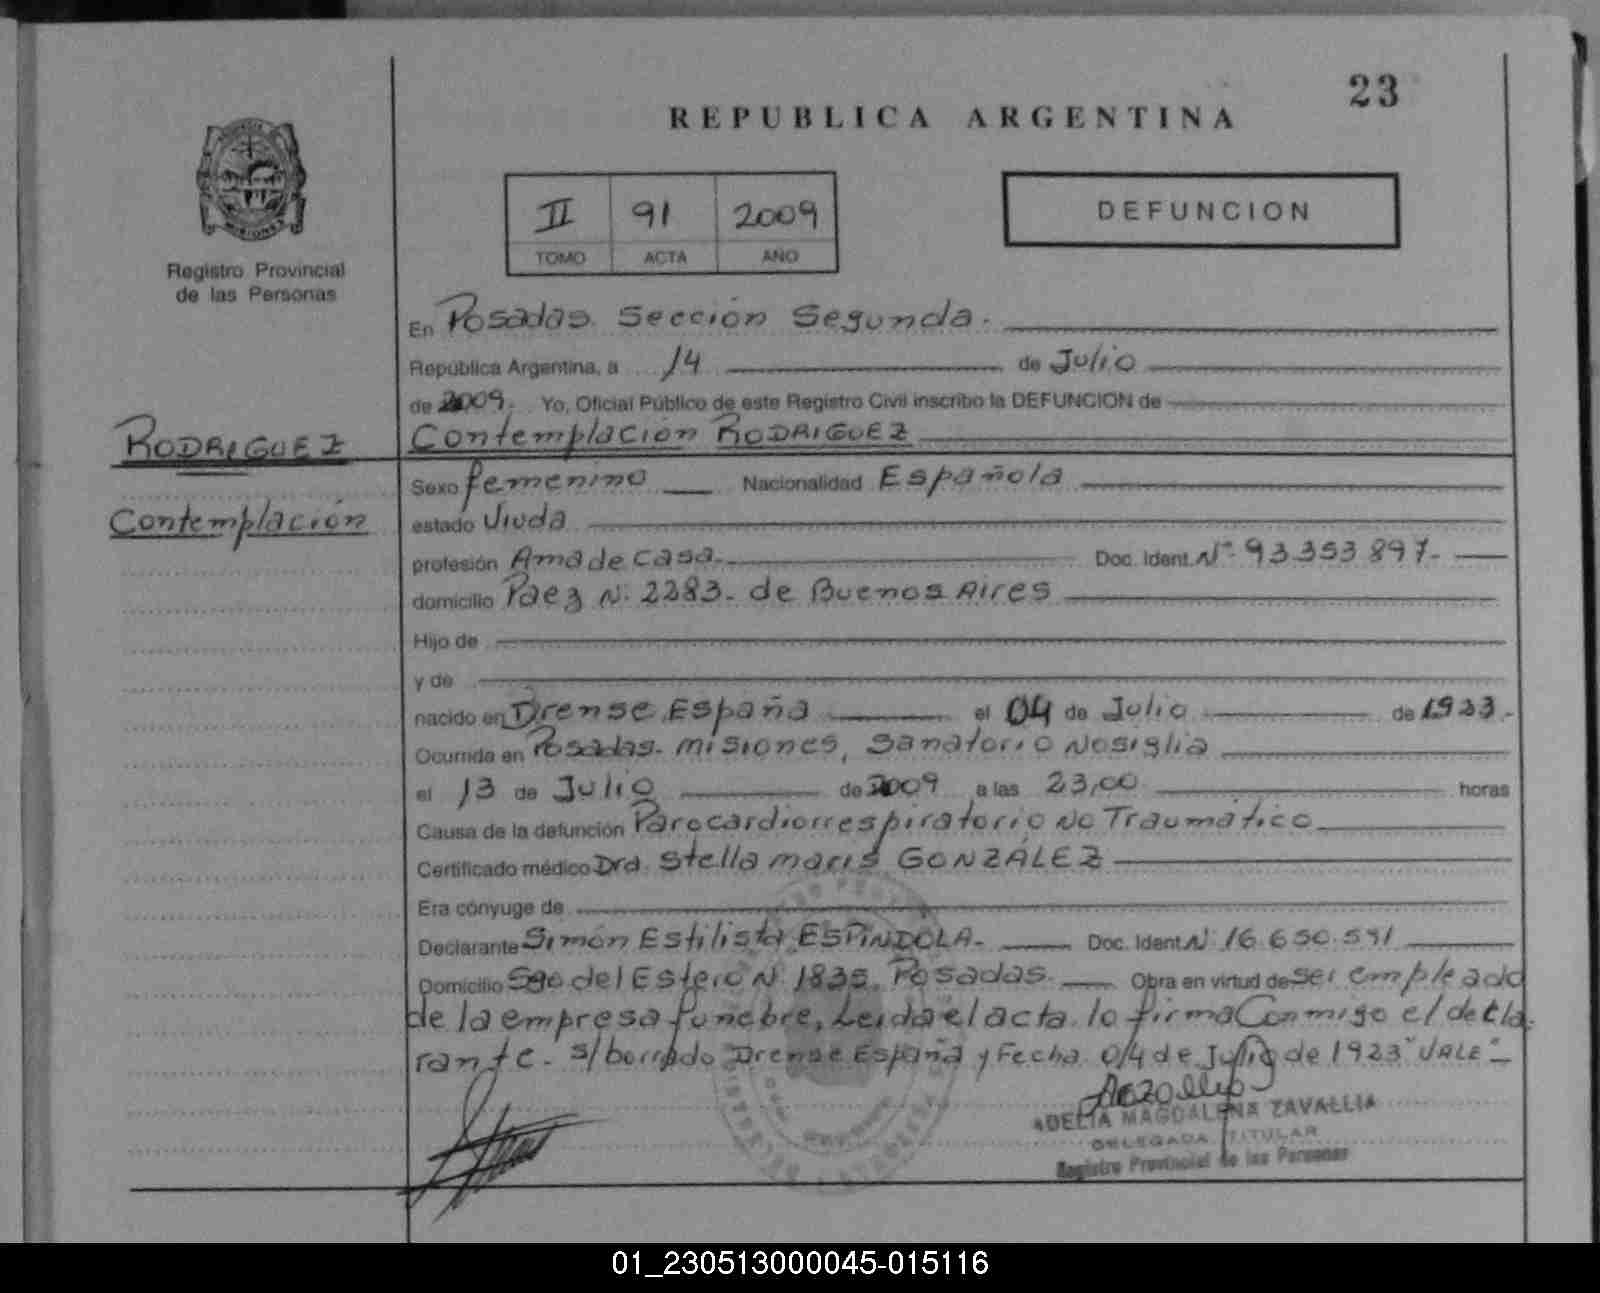 23
REPUBLICA ARGENTINA
II 91 2009
TOMO ACTA AÑO
DEFUNCION
MISIONES
Registro Provincial
de las Personas
En Posadas. Sección Segunda.
República Argentina, a 14 de Julio
de 2009. Yo, Oficial Público de este Registro Civil inscribo la DEFUNCION de
RODRIGUEZ
Contemplación RODRIGUEZ
Contemplación
Sexo femenino Nacionalidad Española
estado Viuda
profesión Ama de casa. Doc. Ident. Nº 93353897.
domicilio Paez N. 2283. de Buenos Aires
Hijo de
y de
nacido en Orense España el 04 de Julio de 1923.
Ocurrida en Posadas. Misiones, Sanatorio Nosiglia
el 13 de Julio de 2009 a las 23,00 horas
Causa de la defunción Parocardiorrespiratorio No Traumático
Certificado médico Dra. Stella maris GONZÁLEZ
Era cónyuge de
Declarante Simón Estilista ESPÍNDOLA. Doc. Ident. N. 16.650.591
Domicilio Sgo del Estero N. 1835. Posadas. Obra en virtud de ser empleado
de la empresa fúnebre, Leida el acta lo firma Conmigo el decla
rante. s/borrado Orense España y Fecha 04 de Julio de 1923 "VALE"
ADELIA MAGDALENA ZAVALLIA
DELEGADA TITULAR
Registro Provincial de las Personas
01_230513000045-015116